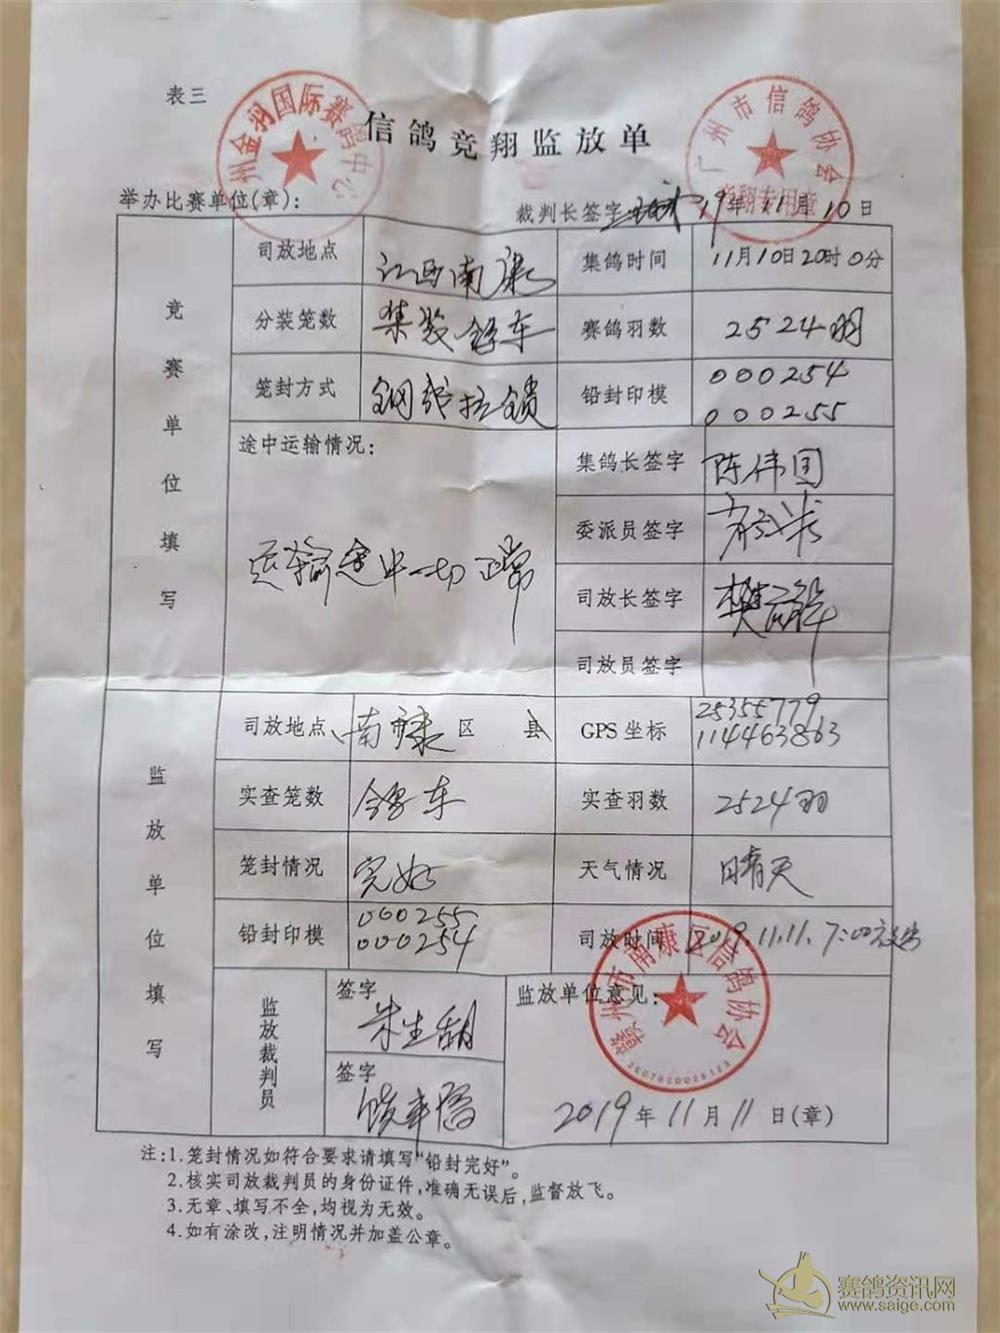 表三
州金羽国际赛鸽中心
信鸽竞翔监放单
广州市信鸽协会
竞翔专用章
举办比赛单位(章)：
裁判长签字 19年11月10日
竞赛单位填写
司放地点 江西南康 集鸽时间 11月10日20时0分
分装笼数 集装鸽车 赛鸽羽数 2524羽
笼封方式 钢线拉锁 铅封印模 000254
000255
途中运输情况：
运输途中一切正常
集鸽长签字 陈伟国
委派员签字
司放长签字
司放员签字
监放单位填写
司放地点 南康区 县 GPS坐标 25355779
114463863
实查笼数 鸽车 实查羽数 2524羽
笼封情况 完好 天气情况 晴天
铅封印模 000255
000254
司放时间 2019.11.11.7:00
监放裁判员
签字 朱生
签字
监放单位意见：
赣州市南康区信鸽协会
2019年11月11日(章)
注：1.笼封情况如符合要求请填写“铅封完好”。
2.核实司放裁判员的身份证件，准确无误后，监督放飞。
3.无章、填写不全，均视为无效。
4.如有涂改，注明情况并加盖公章。
赛鸽资讯网
www.saige.com